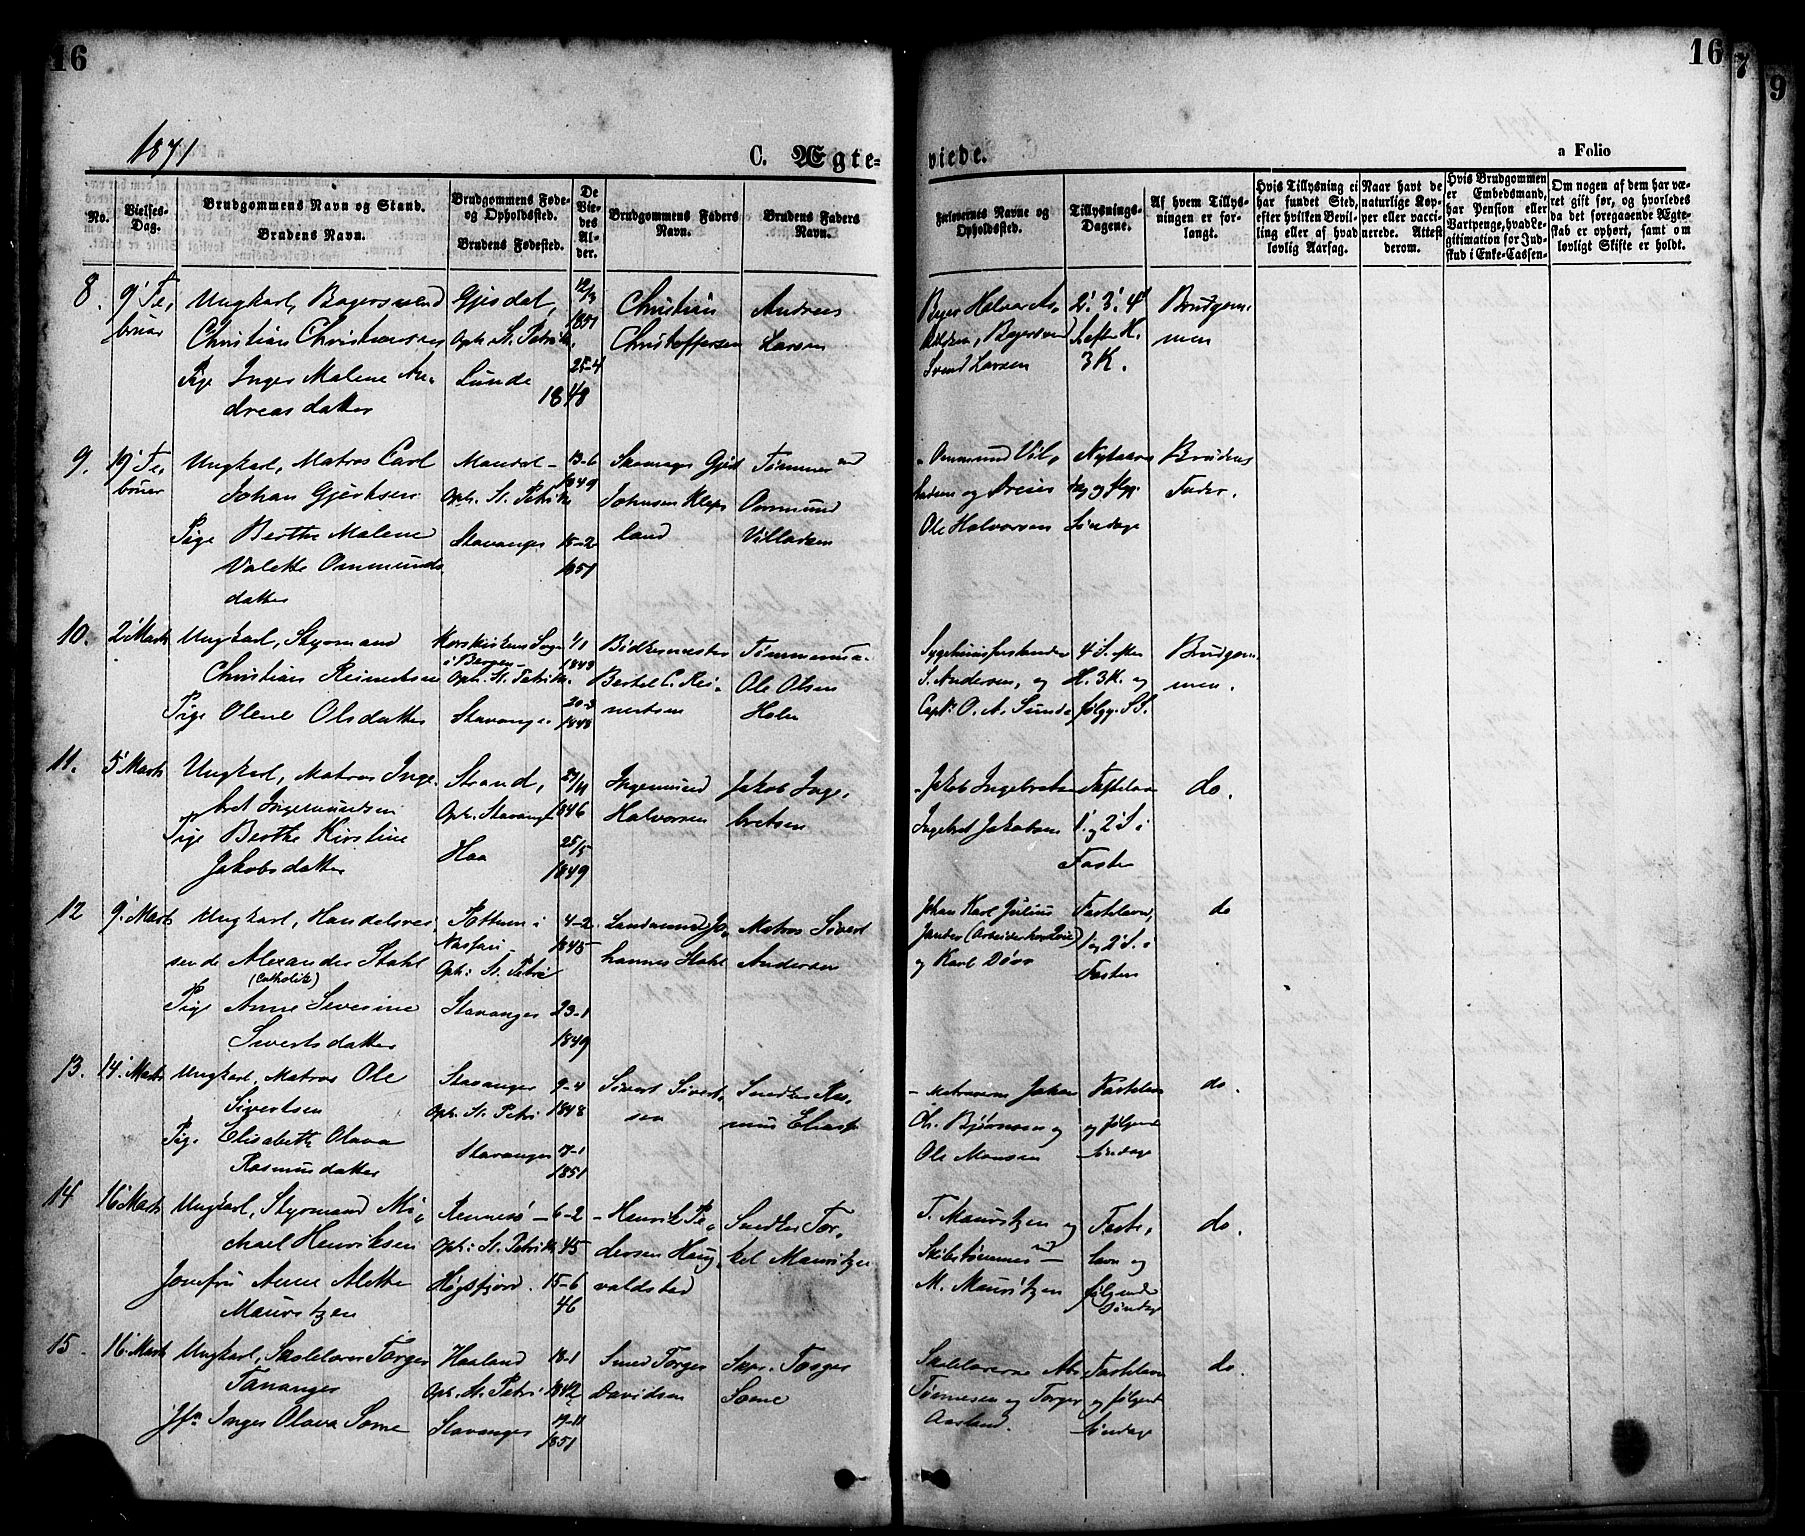 16
16
7
9
1871
C. Ægte-
viede.
a Folio
No.
Vielses-
Dag.
Brudgommens Navn og Stand.
Brudens Navn.
Brudgommens Føde-
og Opholdssted.
Brudens Fødested.
De
Vie-
des
Al-
der.
Brudgommens Faders
Navn.
Brudens Faders
Navn.
Forlovernes Navne og
Opholdssted.
Tillysnings-
Dagene.
Af hvem Tillys-
ningen er for-
langt.
Hvis Tillysning ei
har fundet Sted,
efter hvilken Bevil-
ling eller af hvad
lovlig Aarsag.
Naar havt de
naturlige Kop-
per eller vacci-
nerede. Attest
derom.
Hvis Brudgommen
er Embedsmand,
har Pension eller
Vartpenge, hvad Le-
gitimation for Ind-
skud i Enke-Cassen-
Om nogen af dem har væ-
ret gift før, og hvorledes
da det foregaaende Ægte-
skab er ophørt, samt om
lovligt Skifte er holdt.
8.
9' Fe,
bruar
Ungkarl, Bagersvend
Christian Christiansen
Pige Inger Malene An,
dreasdatter
Gjesdal,
Oph. St. Petrik.
Lunde
12/3
1851
25-4
1848
Christian
Christoffersen
Andreas
Larsen
Svend Larsen
2' 3' 4'
S. efter H.
3 K.
Brudgom,
men
9.
19' Fe,
bruar
Ungkarl, Matros Carl
Johan Gjertsen
Pige Berthe Malene
Valette Ommunds,
datter
Mandal -
Oph. St. Petrik
Stavanger
13-6
1849
15-2
1851
Skomager Gjert
Johnsen Kleps
land
Tømmermd
Ommund
Villadsen
Ommund Vil,
ladsen og
Ole Halvorsen
Nytaars
dag og flgg.
Søndage
Brudens
Fader.
10.
2' Marts
Ungkarl, Styrmand
Christian Reinertsen
Pige Olene Olsdatter
Korskirkens Sogn
i Bergen -
Oph. St. Petrik.
Stavanger
1/1
1848
20-3
1848
Bødkermester
Bertel C. Rei,
nertsen
Tømmermd.
Ole Olsen
Holm
Sygehuusforstander
S. Andersen, og
Capt. O. A. Sunde
4 S. efter
H. 3 K. og
følgg. SS.
Brudgom,
men.
11.
5' Marts
Ungkarl, Matros Inge,
bret Ingemundsen
Pige Berthe Kirstine
Jakobsdatter
Strand,
Oph. Stavanger
Haa
1846
25/5
1849
Ingemund
Halvorsen
Jakob Inge,
bretsen
Jakob Ingebretsen
Ingebret Jakobsen
Fastelavn
1' og 2' S. i
Fasten
do.
12
9' Marts
Ungkarl, Handelsrei,
sende Alexander Stahl
(Catholik)
Pige Anne Severine
Sivertsdatter
Pottum i
Nassau -
Oph: St. Petri
Stavanger
4-2
1845
23-1
1849
Landmand Jo,
hannes Stahl
Matros Sivert
Andersen
Johan Karl Julius
Jander (Arbeiderforening)
og Karl Døss
Fastelavn,
1' og 2' S. i
Fasten
do
13.
14. Marts
Ungkarl, Matros Ole
Sivertsen
Pige Elisabeth Olava
Rasmusdatter
Stavanger
Oph. St. Petri
Stavanger
9-4
1848
17-1
1851
Sivert Sivert,
sen
Snedker Ras,
mus Eliassen
Matroserne Johan
Ch. Bjørnsen og
Ole Monsen
Fastelavn
og følgende
Søndage
do.
14
16' Marts
Ungkarl, Styrmand Mi,
chael Henriksen
Jomfru Anne Alette
Mauritzen
Rennesø -
Oph: St. Petrik.
Høgsfjord.
6-2
45
15-6
46
Henrik Pe,
dersen Haug,
valdstad
Snedker Tor,
kel Mauritzen
T. Mauritzen og
Skibstømmermd -
M. Mauritzen
Faste,
lavn og
følgende
Søndage
do.
15.
16. Marts
Ungkarl, Skolelærer Torger
Tananger
Jfr. Inger Olava Sømme
Haaland
Oph. St. Petri
Stavanger
18-1
1842
17-11
1851
Smed Torger
Davidsen
Skpr. Torger
Sømme
Skolelærerne Abr.
Tønnesen og Torger
Aasland.
Fastelavn
og følgende
Søndage
do